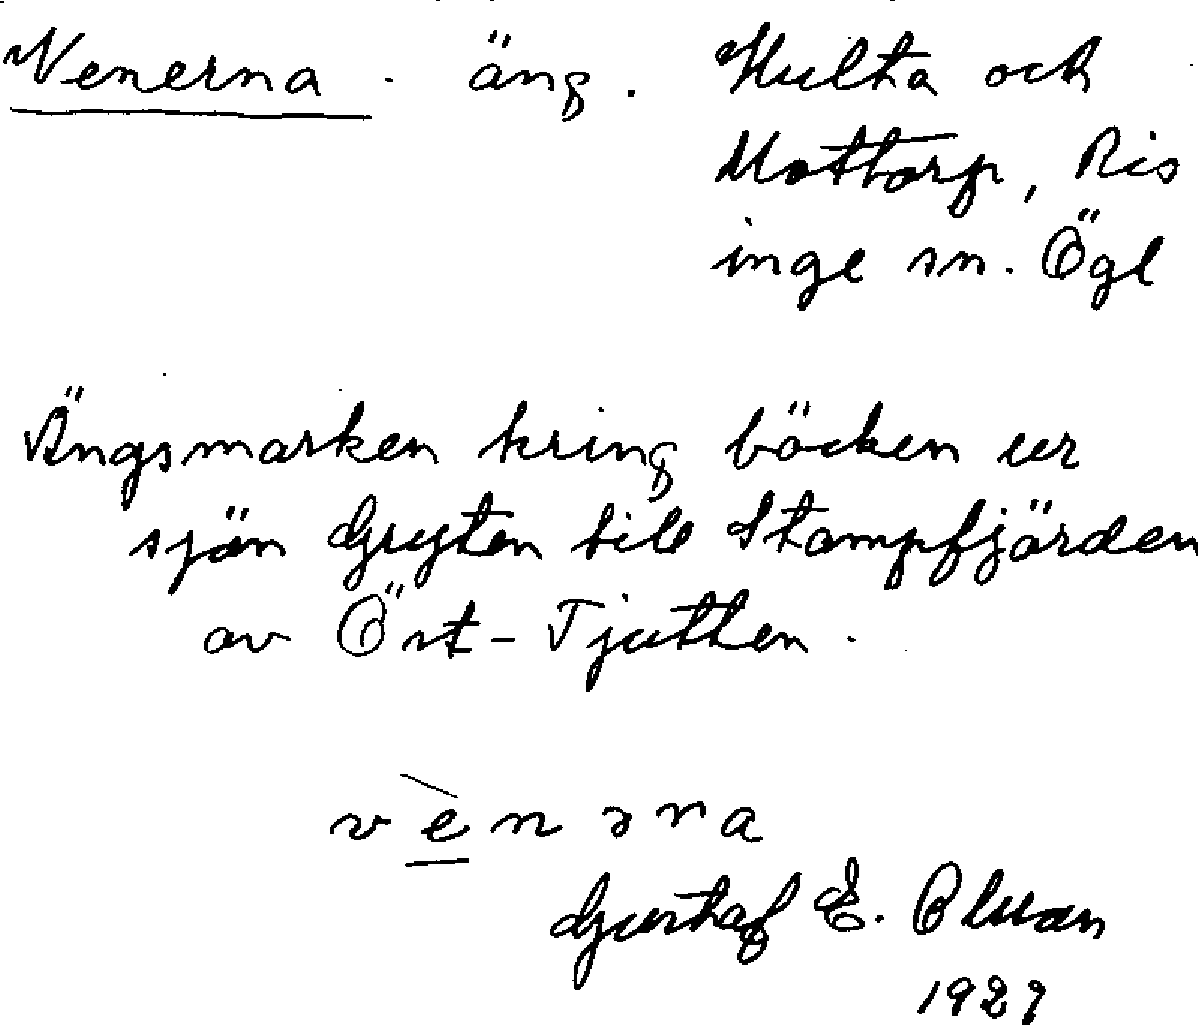 Venerna . äng . Hulta och
Mottorp, Ris
inge sn. Ögl
Ängsmarken kring bäcken ur
sjön Gryten till Stampfjärden
av Öst-Tjutten .
v è n ə r a
Gustaf E. Olsson
1929